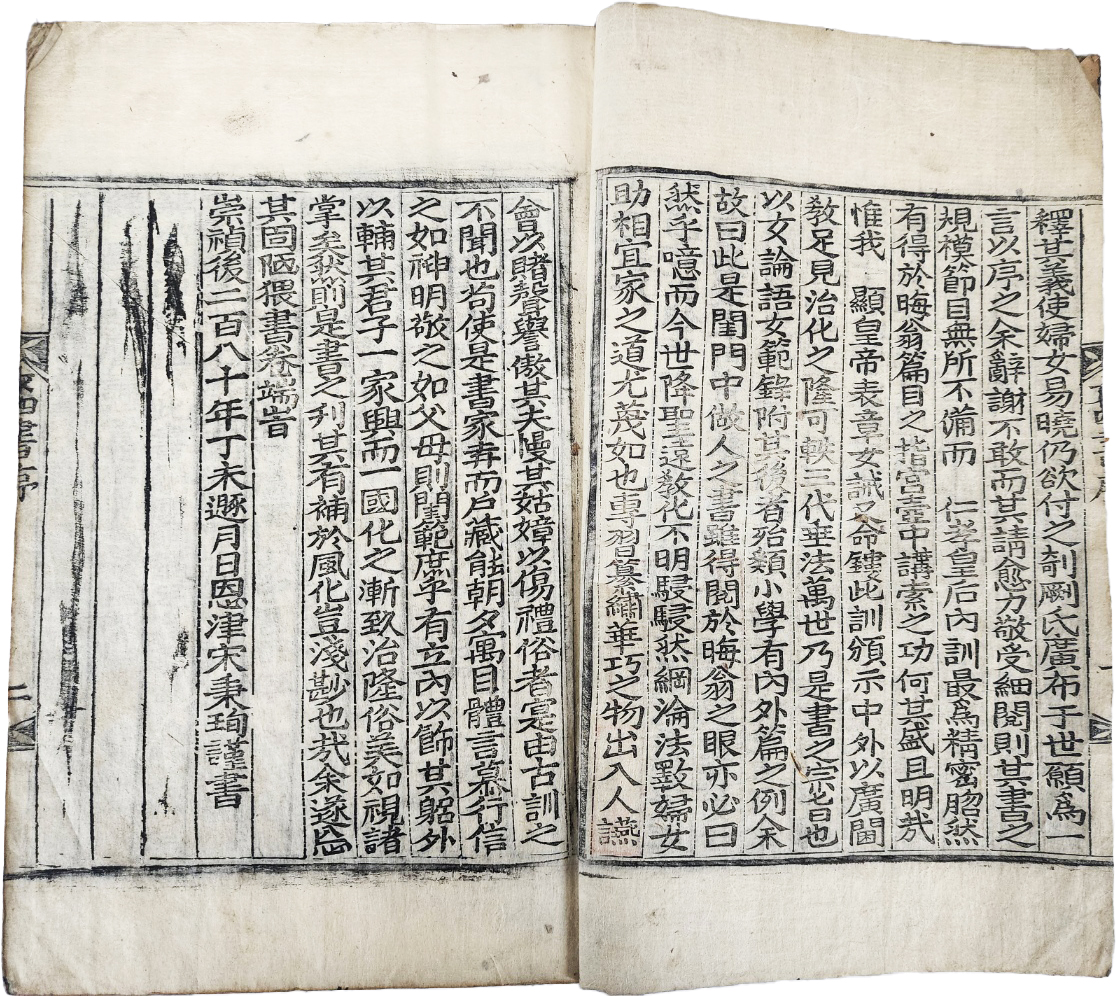 釋其義使婦女易曉仍欲付之剞劂氏廣布于世願爲一
言以序之余辭謝不敢而其請愈力敬受細閱則其書之
規模節目無所不備而　仁孝皇后內訓最爲精密脗然
有得於晦翁篇目之指宮壼中講索之功何其盛且明哉
惟我　顯皇帝表章女誡又命鏤此訓頒示中外以廣閫
教足見治化之隆可軼三代垂法萬世乃是書之宗旨也
以女論語女範錄附其後者殆類小學有內外篇之例余
故曰此是閨門中做人之書雖得閱於晦翁之眼亦必曰
然乎噫而今世降聖遠敎化不明駸駸然綱淪法斁婦女
助相宜家之道尤蔑如也專習纂繡華巧之物出入人讌
會以賭聲譽傲其夫慢其姑嫜以傷禮俗者寔由古訓之
不聞也苟使是書家弆而戶藏能朝夕寓目體言慕行信
之如神明敬之如父母則閨範庶乎有立內以飭其躬外
以輔其君子一家興而一國化之漸致治隆俗美如視諸
掌矣然則是書之刋其有補於風化豈淺尠也哉余遂忘
其固陋猥書卷端旹
崇禎後二百八十年丁未遯月日恩津宋秉珣謹書
四書序
二